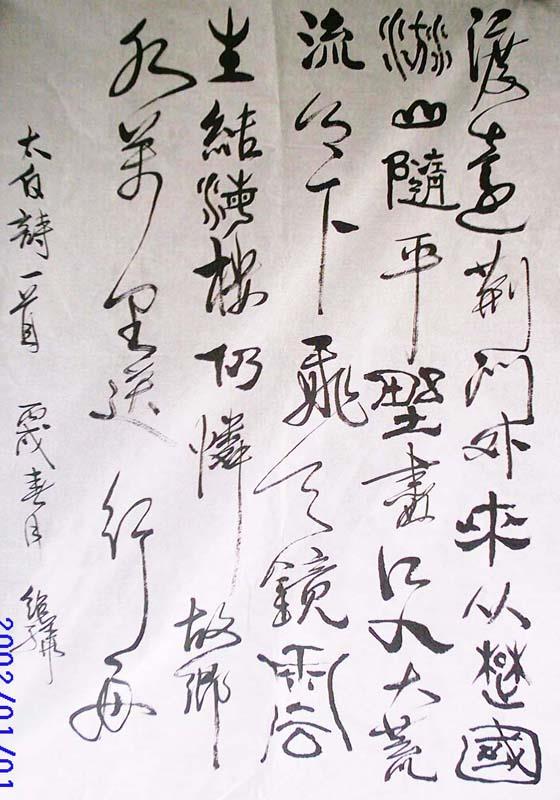 渡遠荆门外来从楚國
游山隨平野盡江入大荒
流月下飛天鏡雲
生結海楼仍憐故鄉
水萬里送行舟
太白詩一首 丙戌春月
2002/01/01